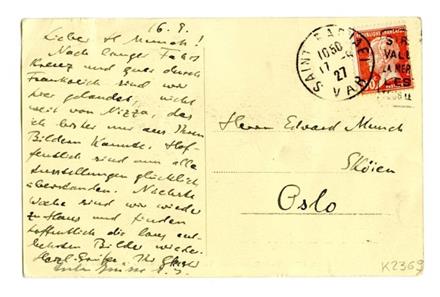 16. 9.
Lieber H. Munch!
Nach langer Fahrt
Kreuz und quer durch
Frankreich sind wir
hier gelandet, nicht
weit von Nizza, das
ich bisher nur aus Ihren
Bildern kannte. Hof-
fentlich sind nun alle
Ausstellungen glücklich
überstanden. Nächste
Woche sind wir wieder
zu Haus und finden
hoffentlich die lang ent-
behrten Bilder wieder.
Herzl. Grüße Ihr
SAINT RAPHAEL
10 50
17 - 9
27
VAR
LA MER
Herrn Edvard Munch
Sköien
Oslo
K2369